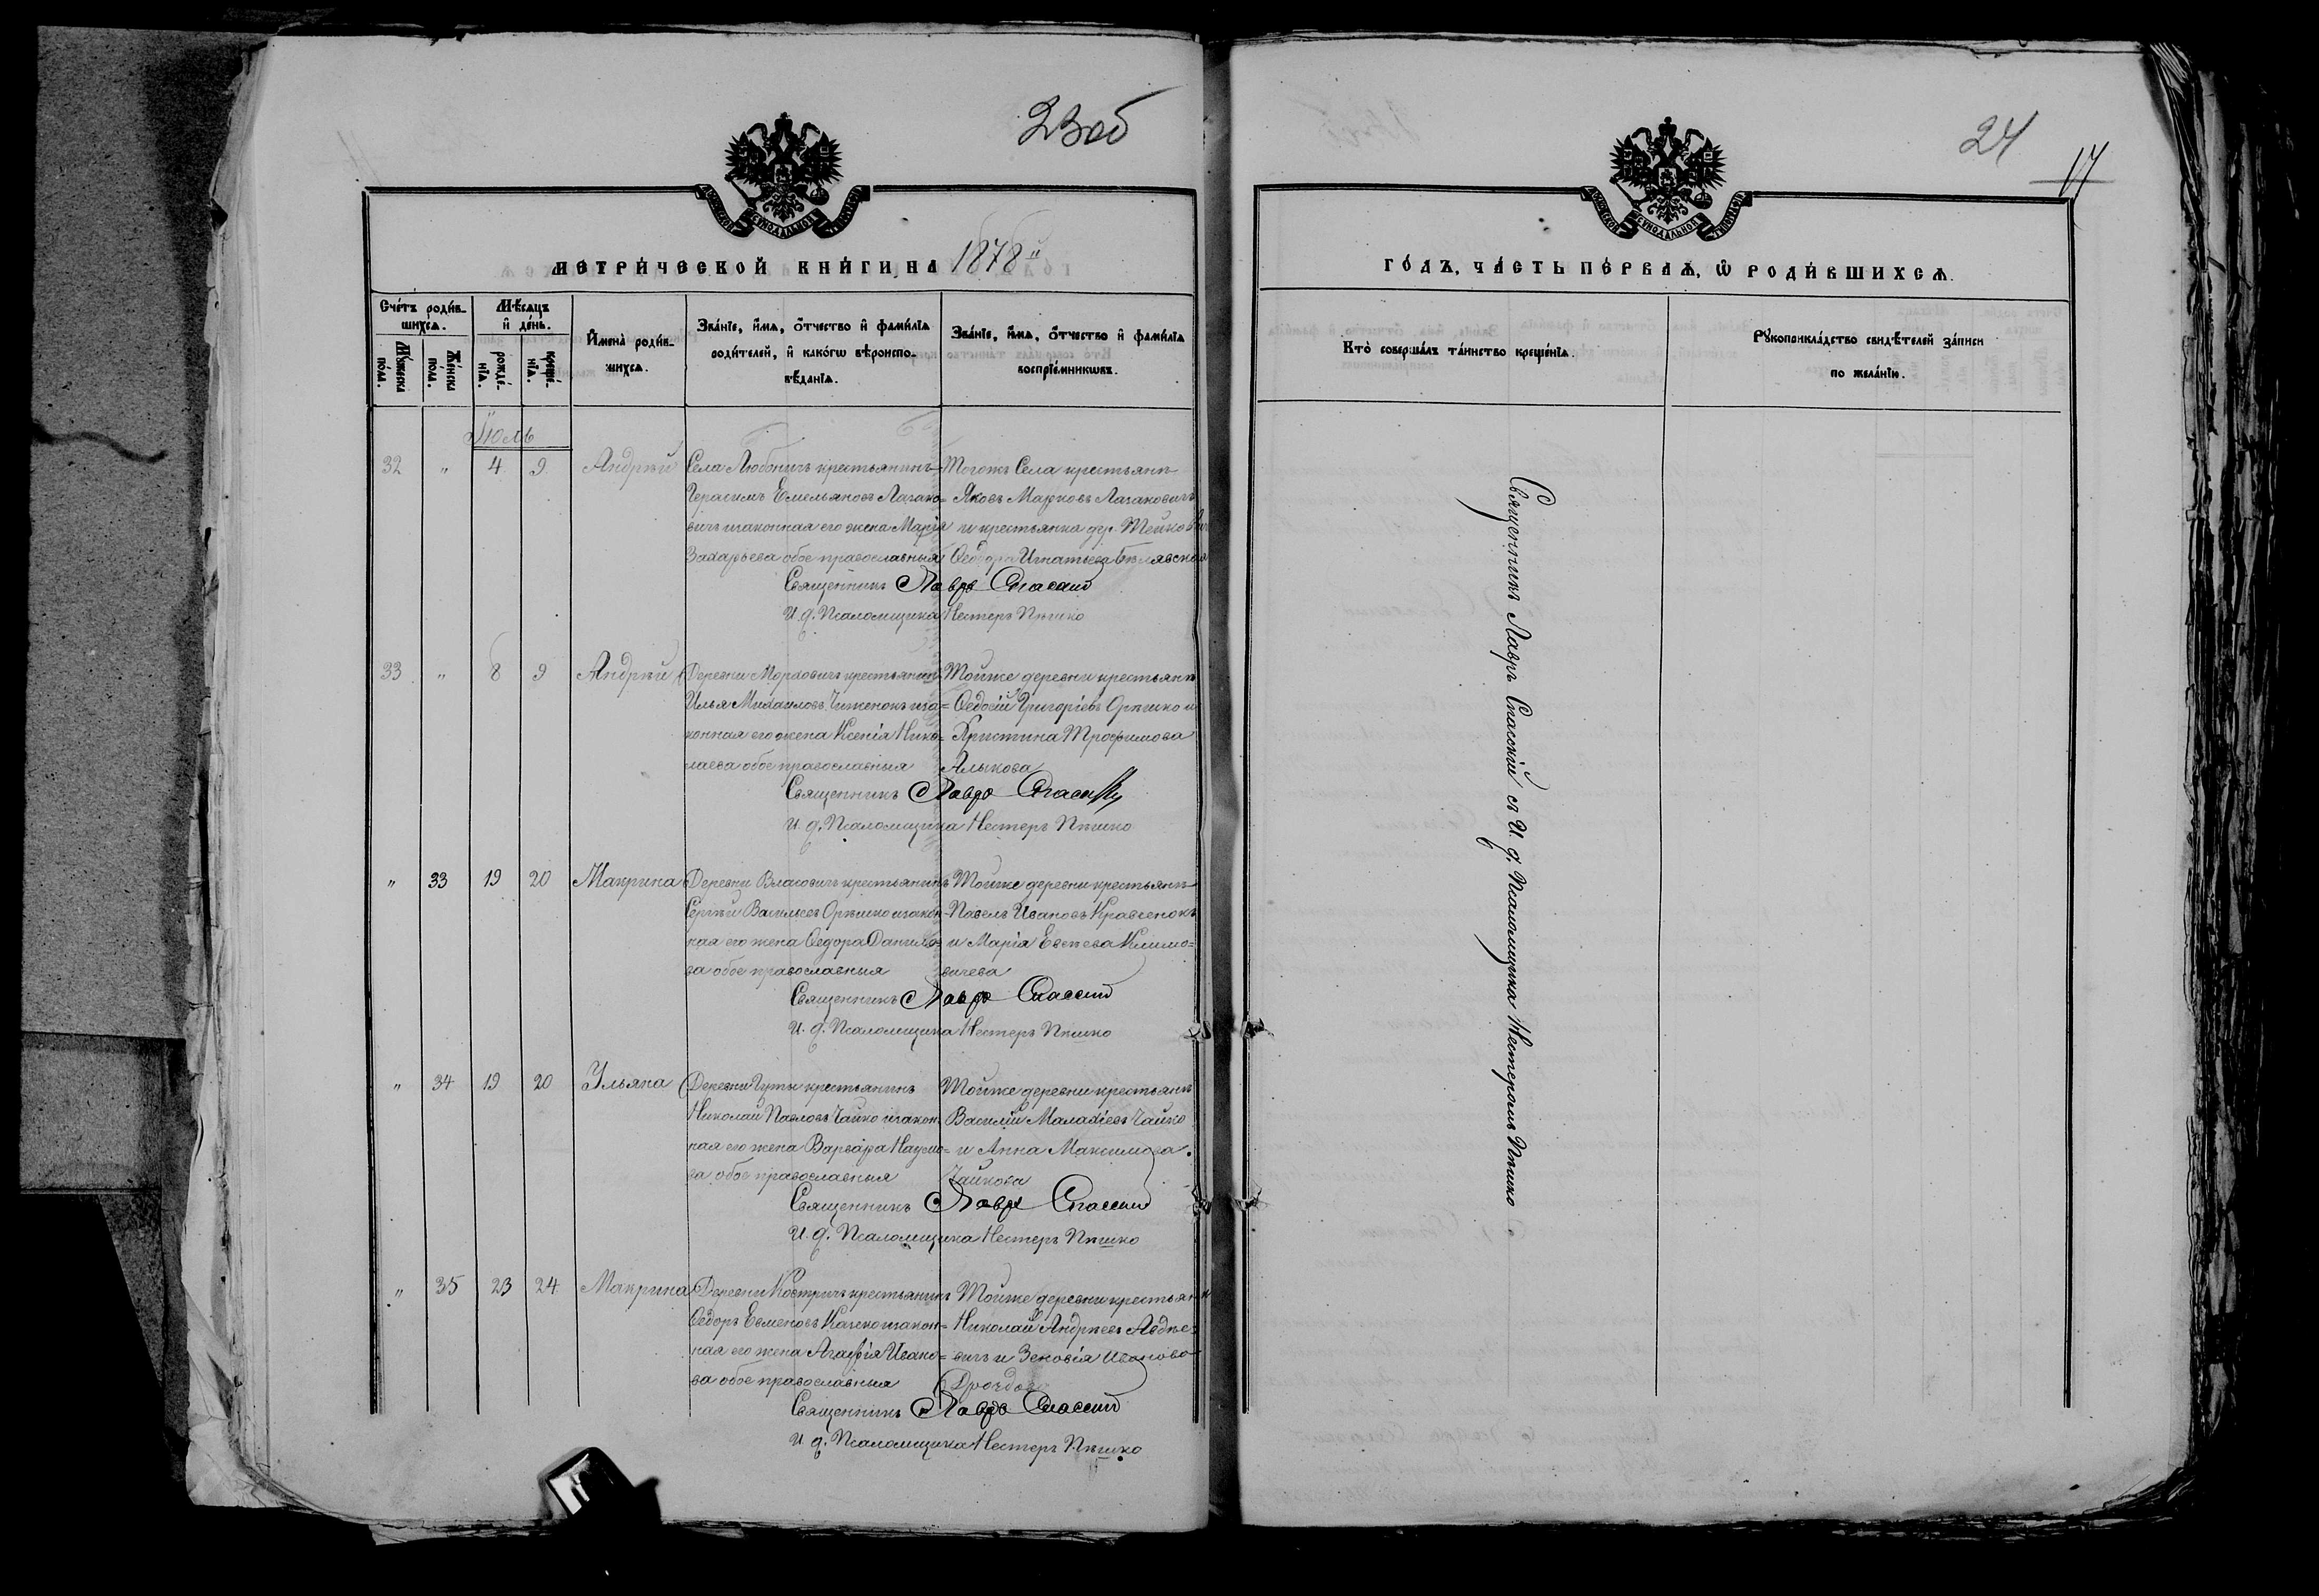 23об
МОСКОВСКОЙ СѴНОДАЛЬНОЙ ТИПОГРАФІИ
МЕТРИ́ЧЕСКОЙ КНИ́ГИ НА 1878й
Сче́тъ роди́вшихсѧ.
Мꙋ́жеска по́ла.
Же́нска по́ла.
Мѣ́сѧцъ и҆ де́нь.
рожде́нїѧ.
креще́нїѧ.
И҆мена̀ роди́вшихсѧ.
Зва́нїе, и҆́мѧ, ѻ҆́тчество и҆ фамі́лїѧ
роди́телей, и҆ како́гѡ вѣроиспо-
вѣ́данїѧ.
Зва́нїе, и҆́мѧ, ѻ҆́тчество и҆ фамі́лїѧ
воспрїе́мникѡвъ.
Іюль
32 " 4 9 Андрѣй
Села Любоничъ крестьянинъ
Герасимъ Емельяновъ Лагако=
вичъ изаконная его жена Марія
Захарьева обое православныя
Тогожъ Села крестьянъ
Яковъ Марковъ Лагаковичъ
и крестьянка дер.
Ѳеодора Игнатьева Бѣлявская
Священникъ Лавръ Спасскій
И. д. Псаломщика Нестеръ Пѣшко
33 " 8 9 Андрѣй
Деревни Морховичъ крестьянинъ
Илья Михаиловъ Чиженокъ иза=
конная его жена Ксенія Нико=
лаева обое православныя
Тойже деревни крестьянъ
Ѳедосій Григоріевъ Орѣшко и
Христина Трофимова
Алыкова
Священникъ Лавръ Спасскій
И. д. Псаломщика Нестеръ Пѣшко
" 33 19 20 Макрина
Деревни Власовичъ крестьянинъ
Сергѣй Васильевъ Орѣшко изакон=
ная его жена Ѳедора Данило=
ва обое православныя
Тойже деревни крестьянъ
Павелъ Ивановъ Кравченокъ
и Марія Евсѣева Климо=
вичева
Священникъ Лавръ Спасскій
И. д. Псаломщика Нестеръ Пѣшко
" 34 19 20 Ульяна
Деревни Гуты крестьянинъ
Николай Павловъ Чайко изакон=
ная его жена Варвара Наумо=
ва обое православныя
Тойже деревни крестьянъ
Василій Малахіевъ Чайко
и Анна Максимова
Чайкова
Священникъ Лавръ Спасскій
И. д. Псаломщика Нестеръ Пѣшко
" 35 23 24 Макрина
Деревни Костричъ крестьянинъ
Ѳедоръ Евменовъ Качко изакон=
ная его жена Агафія Ивано=
ва обое православныя
Тойже деревни крестьянъ
Николай Андрѣевъ Авдѣе=
вичъ и Зеновія Иванова
Дроздова
Священникъ Лавръ Спасскій
И. д. Псаломщика Нестеръ Пѣшко
24
17
МОСКОВСКОЙ СѴНОДАЛЬНОЙ ТИПОГРАФІИ
ГО́ДЪ, ЧА́СТЬ ПЕ́РВАѦ, Ѡ҆ РОДИ́ВШИХСѦ.
Кто̀ соверша́лъ та́инство креще́нїѧ.
Рꙋкоприкла́дство свидѣ́телей за́писи
по жела́нїю.
Священникъ Лавръ Спасскій съ И. д. Псаломщика Нестеромъ Пѣшко